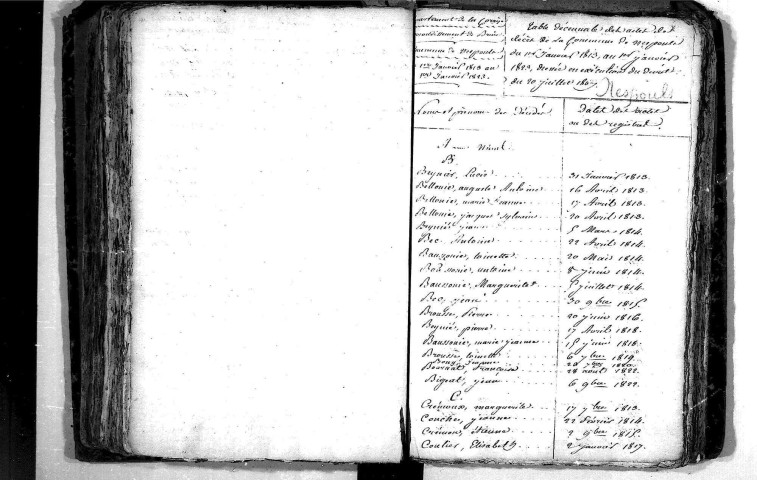 Département de la Corrèze
arrondissement de Brive
Commune de Nespouls
1er Janvier 1813 au
1er Janvier 1823.
Table Décennale des actes de
décès de la Commune de nespouls
du 1er Janvier 1813, au 1er janvier
1823, dressée en exécution du Décret
du 20 juillet 1807.
Nespouls
Noms et prénoms des Décédés
Dates des actes
ou des registres.
A
B.
Beynié, Lucie 31 Janvier 1813.
Bellonie, auguste Antoine 16 Avril 1813.
Bellonie, marie Jeanne 17 Avril 1813.
Bellonie, jacques Sylvain 20 Avril 1813.
Beynié, jean 5 Mars 1814.
Bec, Antoine 22 Avril 1814.
Bauzonie, toinette 20 Mai 1814.
antoine 8 juin 1814.
Baussonie, Marguerite juillet 1814.
Bec, jean 30 9bre 1815.
Brousse, Pierre 20 juin 1816.
Beynié, pierre 17 Avril 1818.
Baussonie, marie jeanne 15 juin 1818.
Brousse, toinette 6 7bre 1819.
françoise 28 aout 1822.
Bigeat, jean 6 9bre 1822.
C.
Crémoux, marguerite 17 7bre 1813.
Conchez, jeanne 22 février 1814.
Crémoux, étienne 2 9bre 1815.
Coulier, Elisabeth 2 janvier 1817.